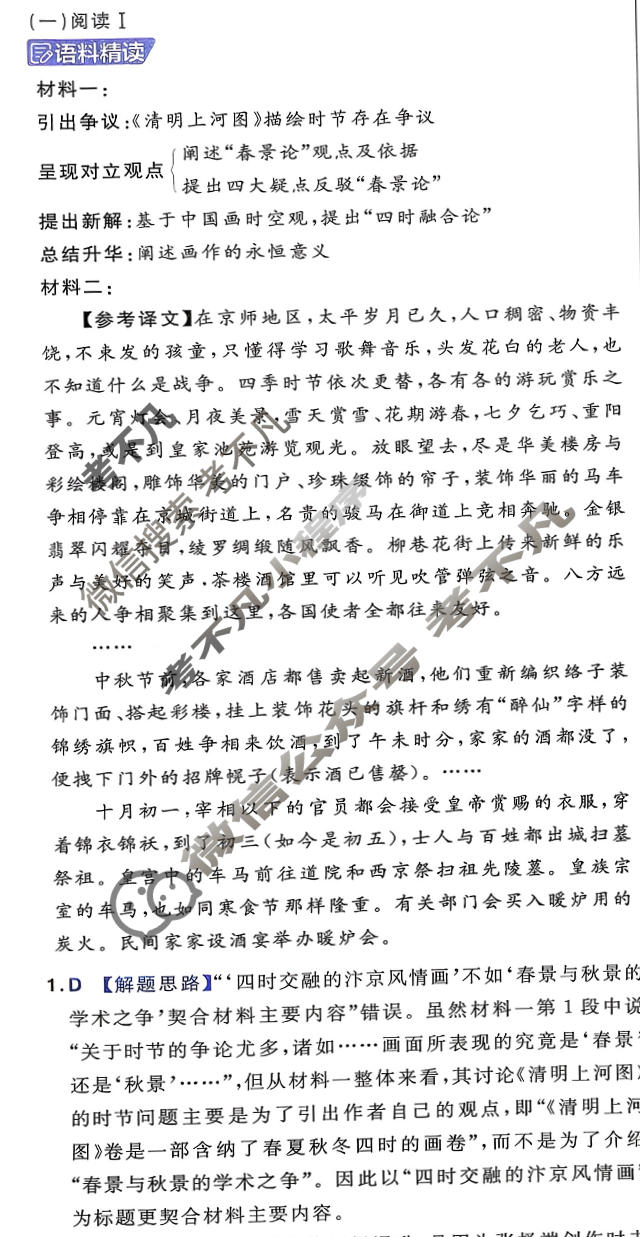 (一)阅读Ⅰ
语料精读
材料一:
引出争议:《清明上河图》描绘时节存在争议
呈现对立观点
阐述“春景论”观点及依据
提出四大疑点反驳“春景论”
提出新解:基于中国画时空观,提出“四时融合论”
总结升华:阐述画作的永恒意义
材料二:
【参考译文】在京师地区,太平岁月已久,人口稠密、物资丰
饶,不束发的孩童,只懂得学习歌舞音乐,头发花白的老人,也
不知道什么是战争。四季时节依次更替,各有各的游玩赏乐之
事。元宵灯会、月夜美景,雪天赏雪、花期游春,七夕乞巧、重阳
登高,或是到皇家池苑游览观光。放眼望去,尽是华美楼房与
彩绘楼阁,雕饰华美的门户、珍珠缀饰的帘子,装饰华丽的马车
争相停靠在京城街道上,名贵的骏马在御道上竞相奔驰。金银
翡翠闪耀夺目,绫罗绸缎随风飘香。柳巷花街上传来新鲜的乐
声与美好的笑声,茶楼酒馆里可以听见吹管弹弦之音。八方远
来的人争相聚集到这里,各国使者全都往来友好。
……
中秋节前,各家酒店都售卖起新酒,他们重新编织络子装
饰门面、搭起彩楼,挂上装饰花头的旗杆和绣有“醉仙”字样的
锦绣旗帜,百姓争相来饮酒,到了午未时分,家家的酒都没了,
便拽下门外的招牌幌子(表示酒已售罄)。……
十月初一,宰相以下的官员都会接受皇帝赏赐的衣服,穿
着锦衣锦袄,到了初三(如今是初五),士人与百姓都出城扫墓
祭祖。皇宫中的车马前往道院和西京祭扫祖先陵墓。皇族宗
室的车马,也如同寒食节那样隆重。有关部门会买入暖炉用的
炭火。民间家家设酒宴举办暖炉会。
1.D 【解题思路】“‘四时交融的汴京风情画’不如‘春景与秋景的
学术之争’契合材料主要内容”错误。虽然材料一第1段中说
“关于时节的争论尤多,诸如……画面所表现的究竟是‘春景’
还是‘秋景’……”,但从材料一整体来看,其讨论《清明上河图》
的时节问题主要是为了引出作者自己的观点,即“《清明上河
图》卷是一部含纳了春夏秋冬四时的画卷”,而不是为了介绍
“春景与秋景的学术之争”。因此以“四时交融的汴京风情画”
为标题更契合材料主要内容。
考不凡
微信搜索考不凡
考不凡小程序
微信公众号 考不凡